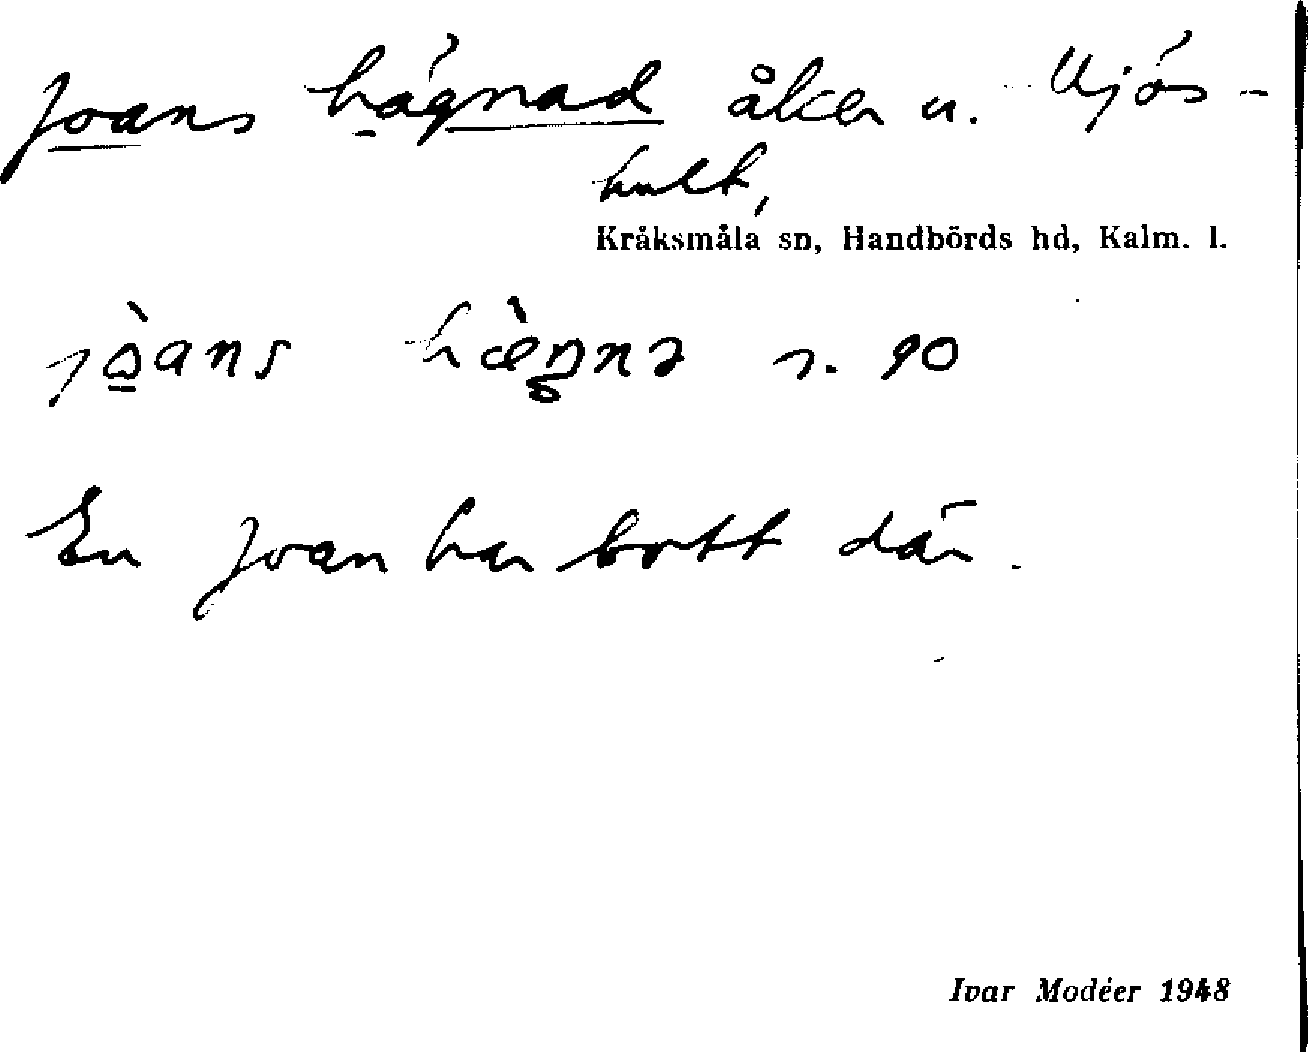 Joans hägnad åker u. Ujös-
hult,
Kråksmåla sn, Handbörds hd, Kalm. l.
En Joan har bott där.
Ivar Modéer 1948